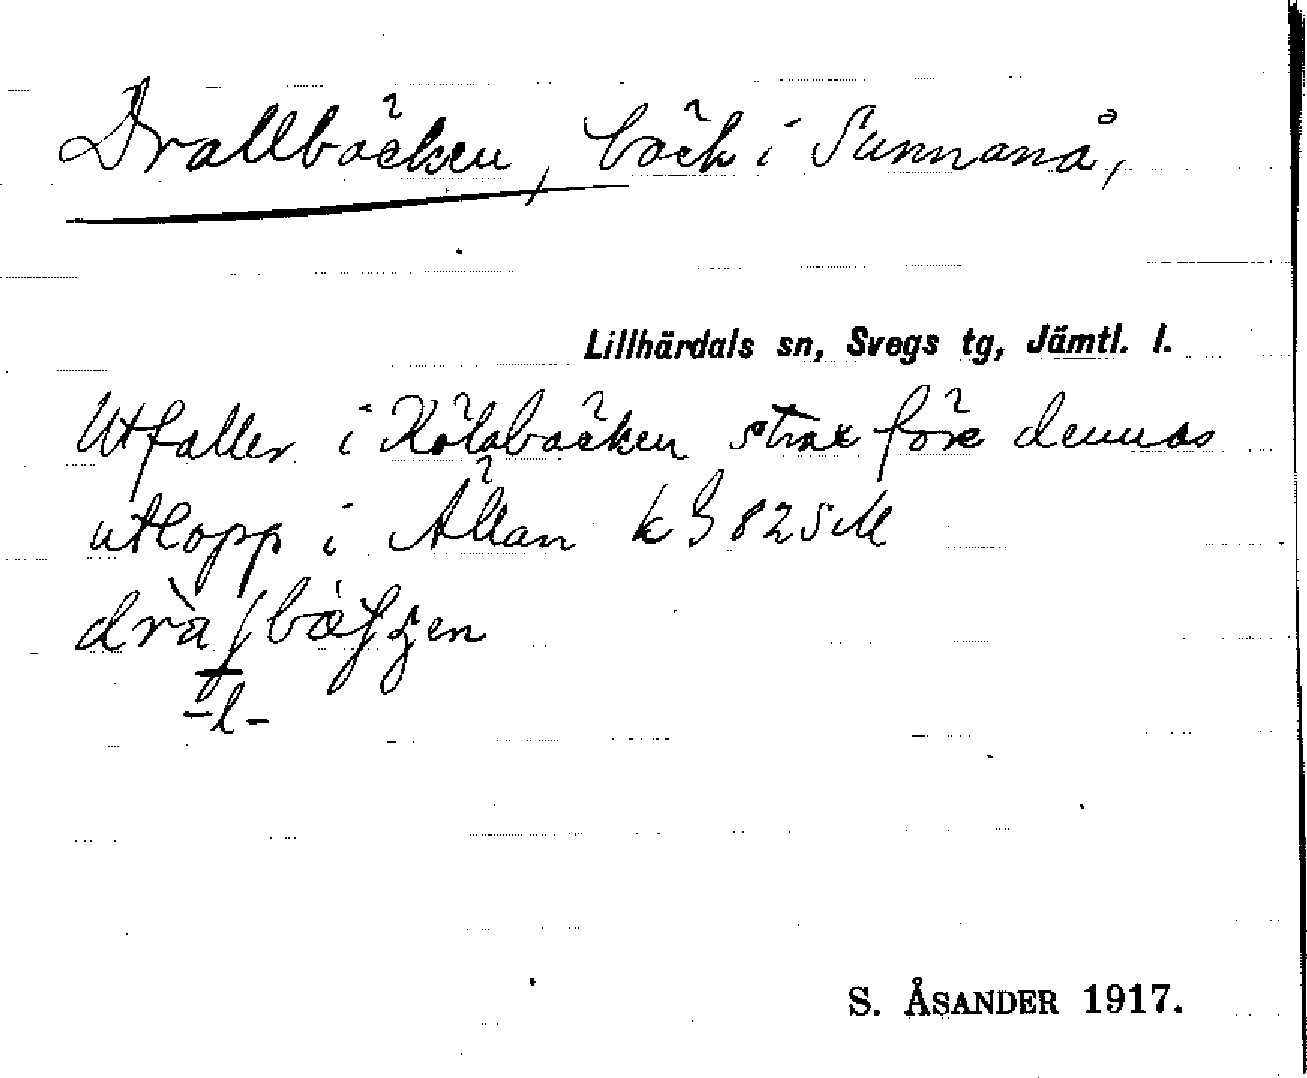 Drallbäcken, bäck i Sunnanå,
Lillhärdals sn, Svegs tg, Jämtl. l.
Utfaller i Kölabäcken strax före dennas
utlopp i Ällan
-l-
S. ÅSANDER 1917.